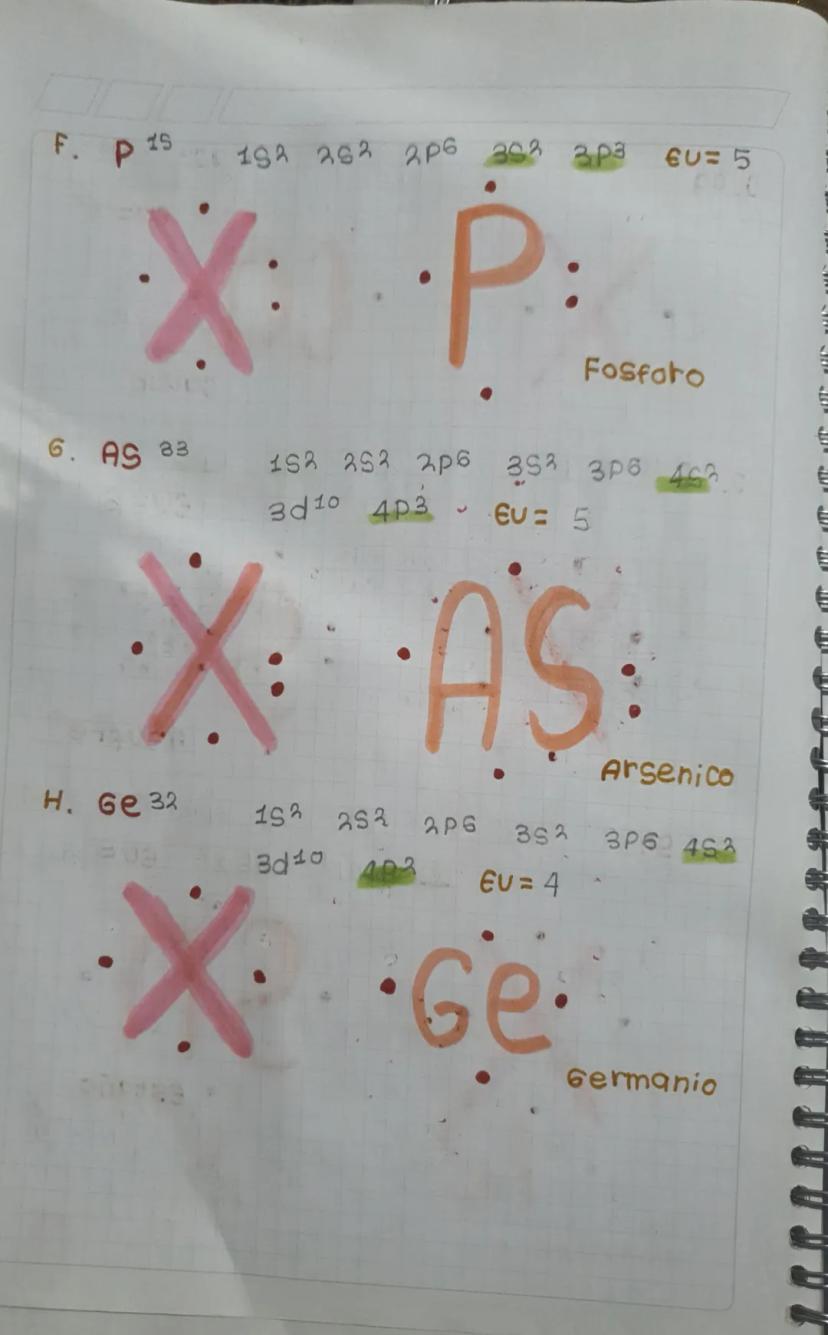 F. P 15 1S2 2S2 2P6 3S2 3P3 EV= 5
X P
Fosforo
G. AS 33 1S2 2S2 2P6 3S2 3P6 4S2
3d10 4P3 EV= 5
X AS
Arsenico
H. Ge 32 1S2 2S2 2P6 3S2 3P6 4S2
3d10 4P2 EV= 4
X Ge
Germanio